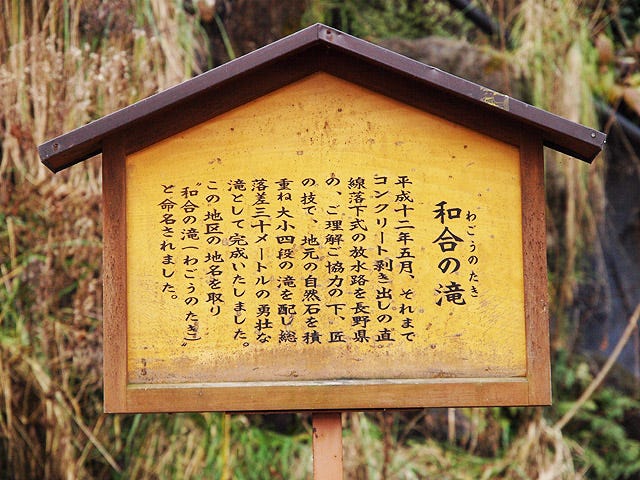 わごうのたき
和合の滝
平成十二年五月、それまで
コンクリート剥き出しの直
線落下式の放水路を長野県
の、ご理解ご協力の下、匠
の技で、地元の自然石を積
重ね大小四段の滝を配し総
落差三十メートルの勇壮な
滝として完成いたしました。
この地区の地名を取り
"和合の滝(わごうのたき)"
と命名されました。